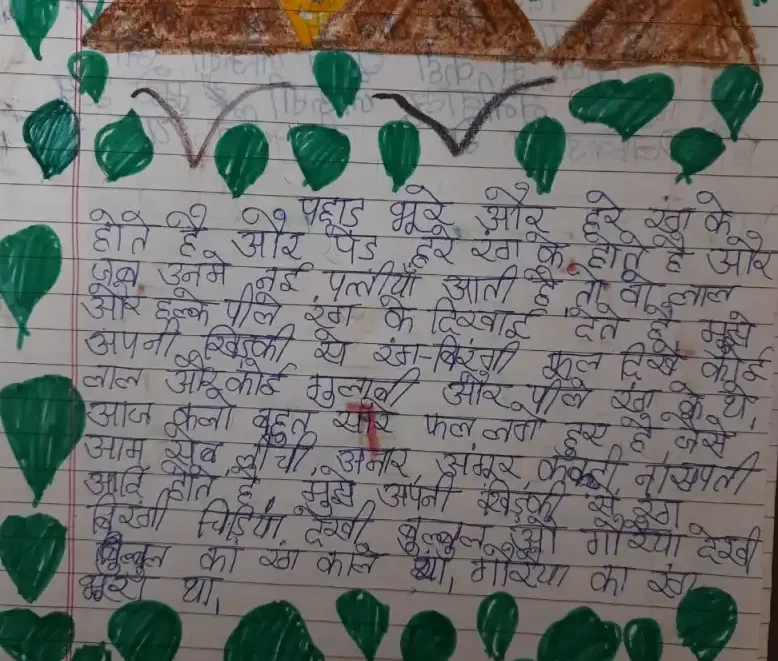 पहाड़ भूरे और हरे रंग के
होते है और पेड हरे रंग के होते है और
जब उनमे नई पत्तीयाँ आती है तो वो लाल
और हल्के पीले रंग के दिखाई देते है मुझे
अपनी खिड़की से रंग-बिरंगी फूल दिखे कोई
लाल और कोई गुलाबी और पीले रंग के थे,
आज कल बहुत सारे फल लगे हुए है जैसे
आम सेब लीची अनार अंगूर ककड़ी नासपती
आदि होते है, मुझे अपनी खिड़की से रंग
बिरंगी चिड़ियाँ देखी बुलबुल ओ गौरेया देखी
बुलबुल का रंग काले था, गौरेया का रंग
भूरा था,